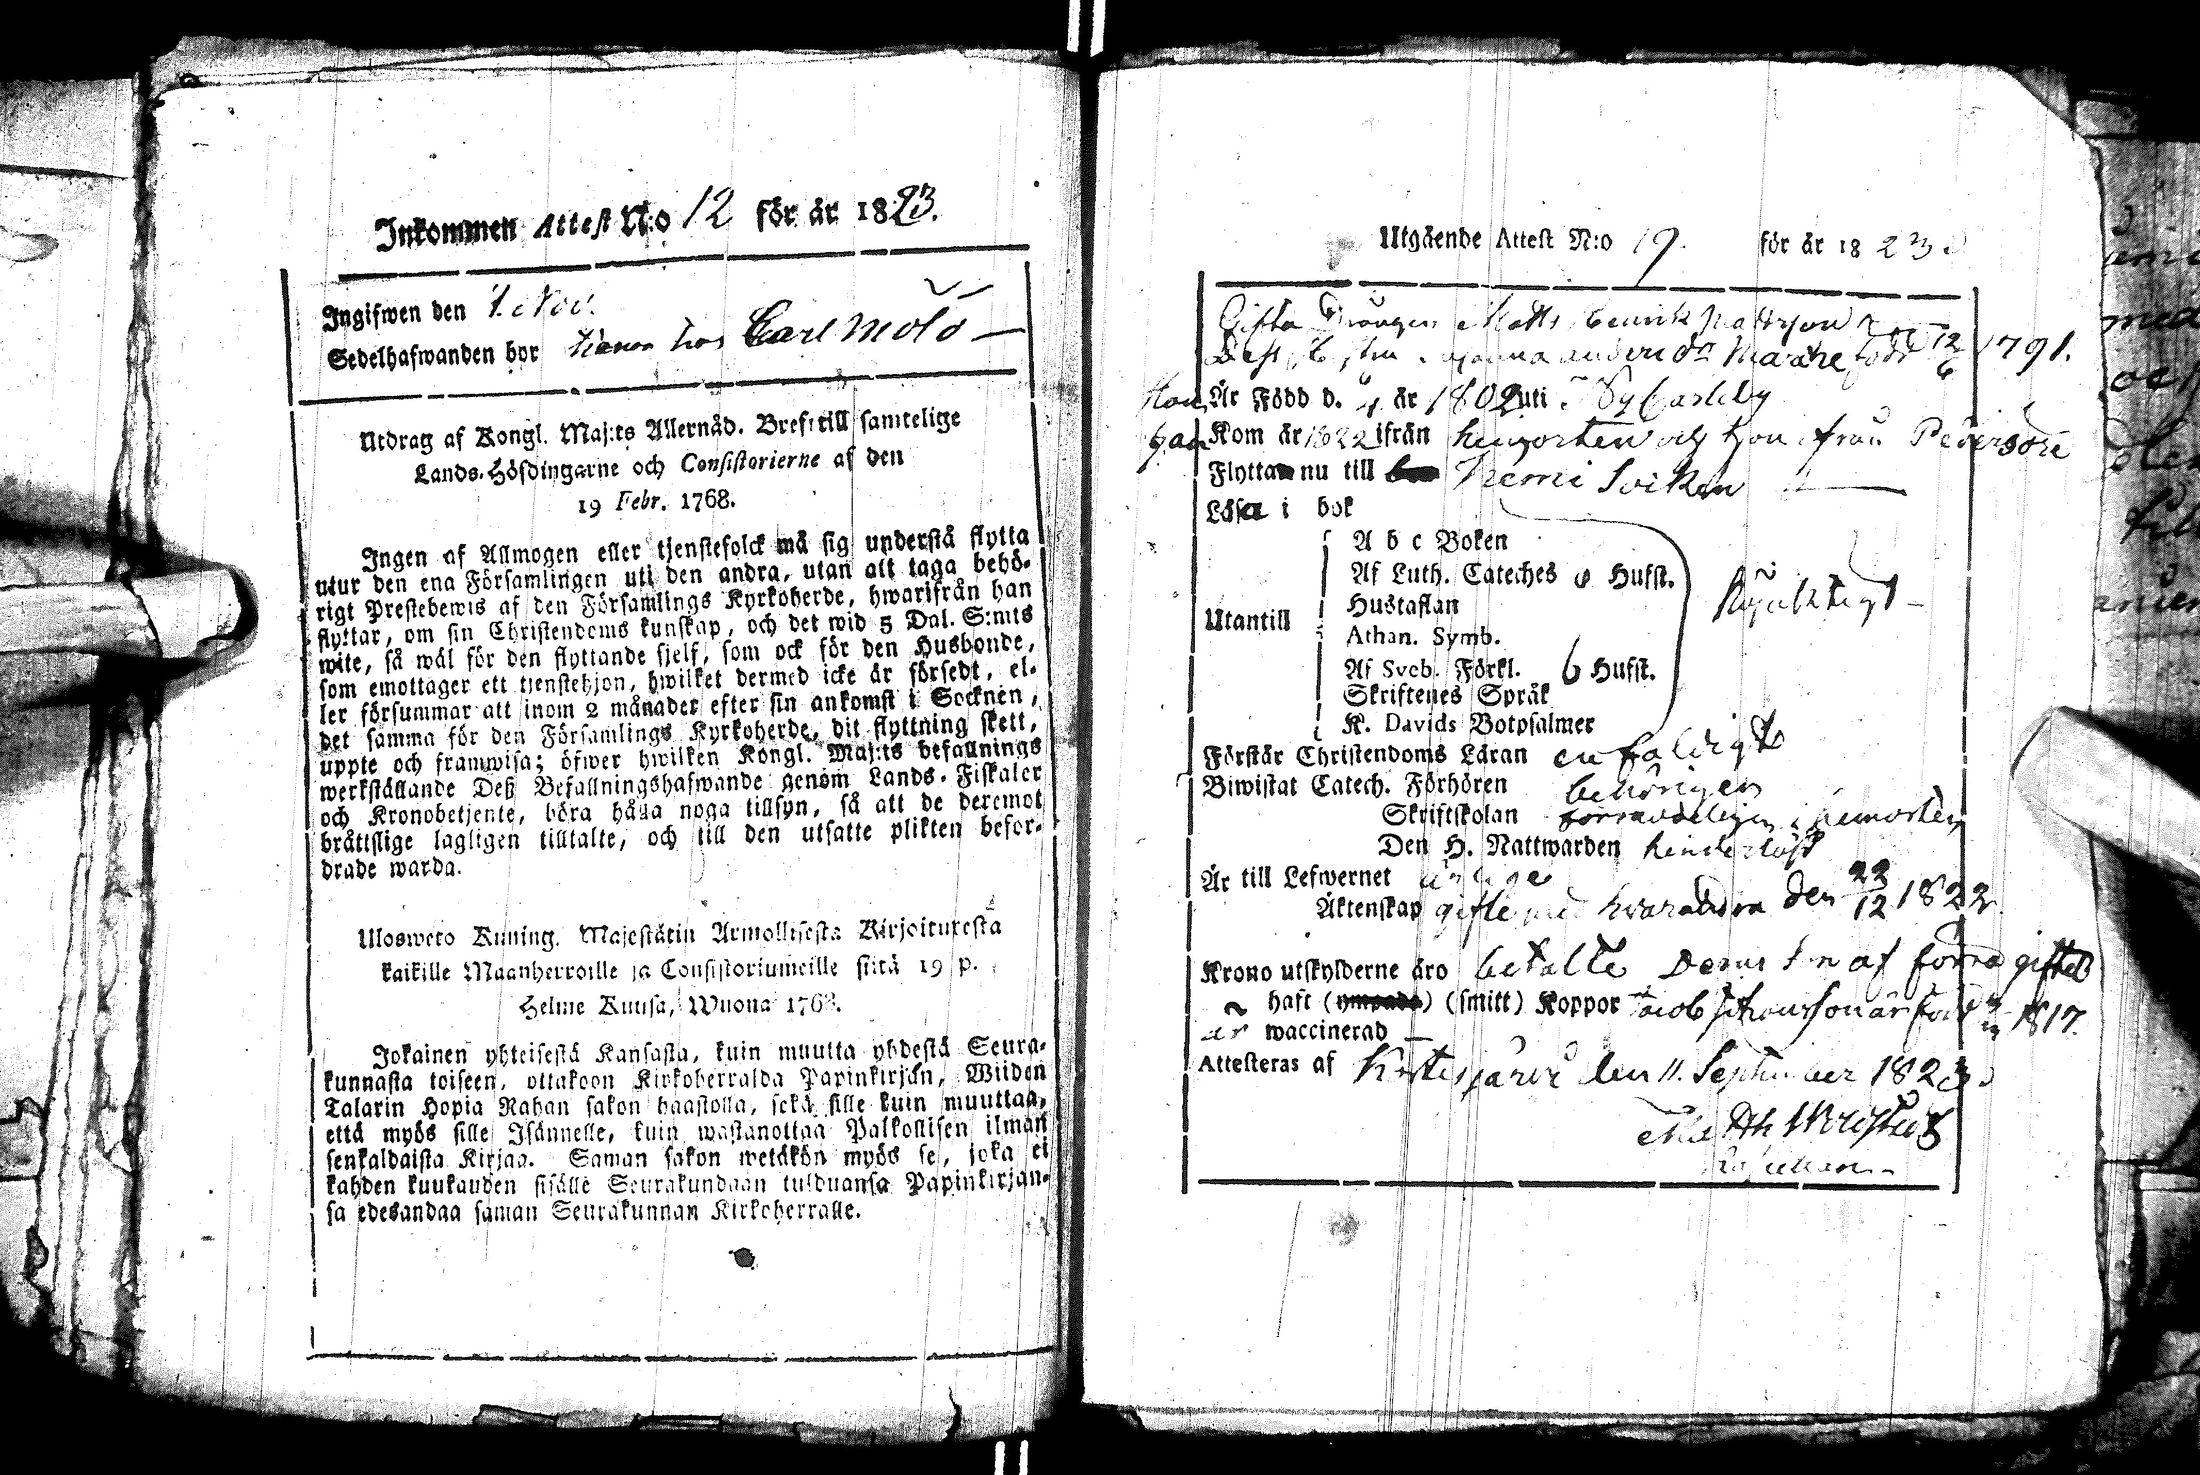 Inkommen Attest N:o 12 för år 1823.
Ingifwen den 1. Nov.
Sedelhafwanden bor hos Carl Mölö
Utdrag af Kongl. Maj:ts Allernåd. Bref till samtelige
Lands-Höfdingarne och Consistorierne af den
19 Febr. 1768.
Ingen af Allmogen eller tjenstefolck må sig understå flytta
utur den ena Församlingen uti den andra, utan att taga behö-
rigt Prestebewis af den Församlings Kyrkoherde, hwarifrån han
flyttar, om sin Christendoms kunskap, och det wid 5 Dal. S:mts
wite, så wäl för den flyttande sjelf, som ock för den Husbonde,
som emottager ett tjenstehjon, hwilket dermed icke är försedt, el-
ler försummar att inom 2 månader efter sin ankomst i Socknen,
det samma för den Församlings Kyrkoherde, dit flyttning skett,
uppte och framwisa; öfwer hwilken Kongl. Maj:ts befallnings
werkställande Deß Befallningshafwande genom Lands-Fiskaler
och Kronobetjente, böra hålla noga tillsyn, så att de deremot
bråttslige lagligen tilltalte, och till den utsatte plikten befor-
drade warda.
Ulosweto Kuning. Majestätin Armollisesta Kirjoituxesta
kaikille Maanherroille ja Consistoriumeille siitä 19 p.
Helme Kuusa, Wuona 1768.
Jokainen yhteisestä Kansasta, kuin muutta yhdestä Seura-
kunnasta toiseen, ottakoon Kirkoherralda Papinkirjan, Wiiden
Talarin Hopia Rahan sakon haastolla, sekä sille kuin muuttaa,
että myös sille Isännelle, kuin wastanottaa Palkollisen ilman
senkaldaista Kirjaa. Saman sakon wetäkön myös se, joka ei
kahden kuukauden sisälle Seurakundaan tulduansa Papinkirjan-
sa edesandaa saman Seurakunnan Kirkoherralle.
Utgående Attest N:o 19. för år 1823.
Gifta Drängen Matts Henrik Mattsson
Dess Hustru Marke född 12/6 1791.
Hon Är Född d. 4 år 1802 uti Ny Carleby
Kom år 1822 ifrån hemorten och hon ifrån Pedersöre
Flytta nu till Kemi Socken
Läsa i bok
A b c Boken
Af Luth. Cateches Hufst.
Hustaflan
Utantill
Athan. Symb.
Af Sveb. Förkl. 6 Hufst.
Skriftenes Språk
K. Davids Botpsalmer
Förstår Christendoms Läran enfaldigt
Biwistat Catech. Förhören behörigen
Skriftskolan i hemorten
Den H. Nattwarden
Är till Lefwernet ärlige
Äktenskap gifte med hvarandra den 22/12 1822
Krono utskylderne äro betalte af förra giftet
haft (smitt) Koppor Jacob är född 1817.
är waccinerad
Attesteras af den 11. September 1823.